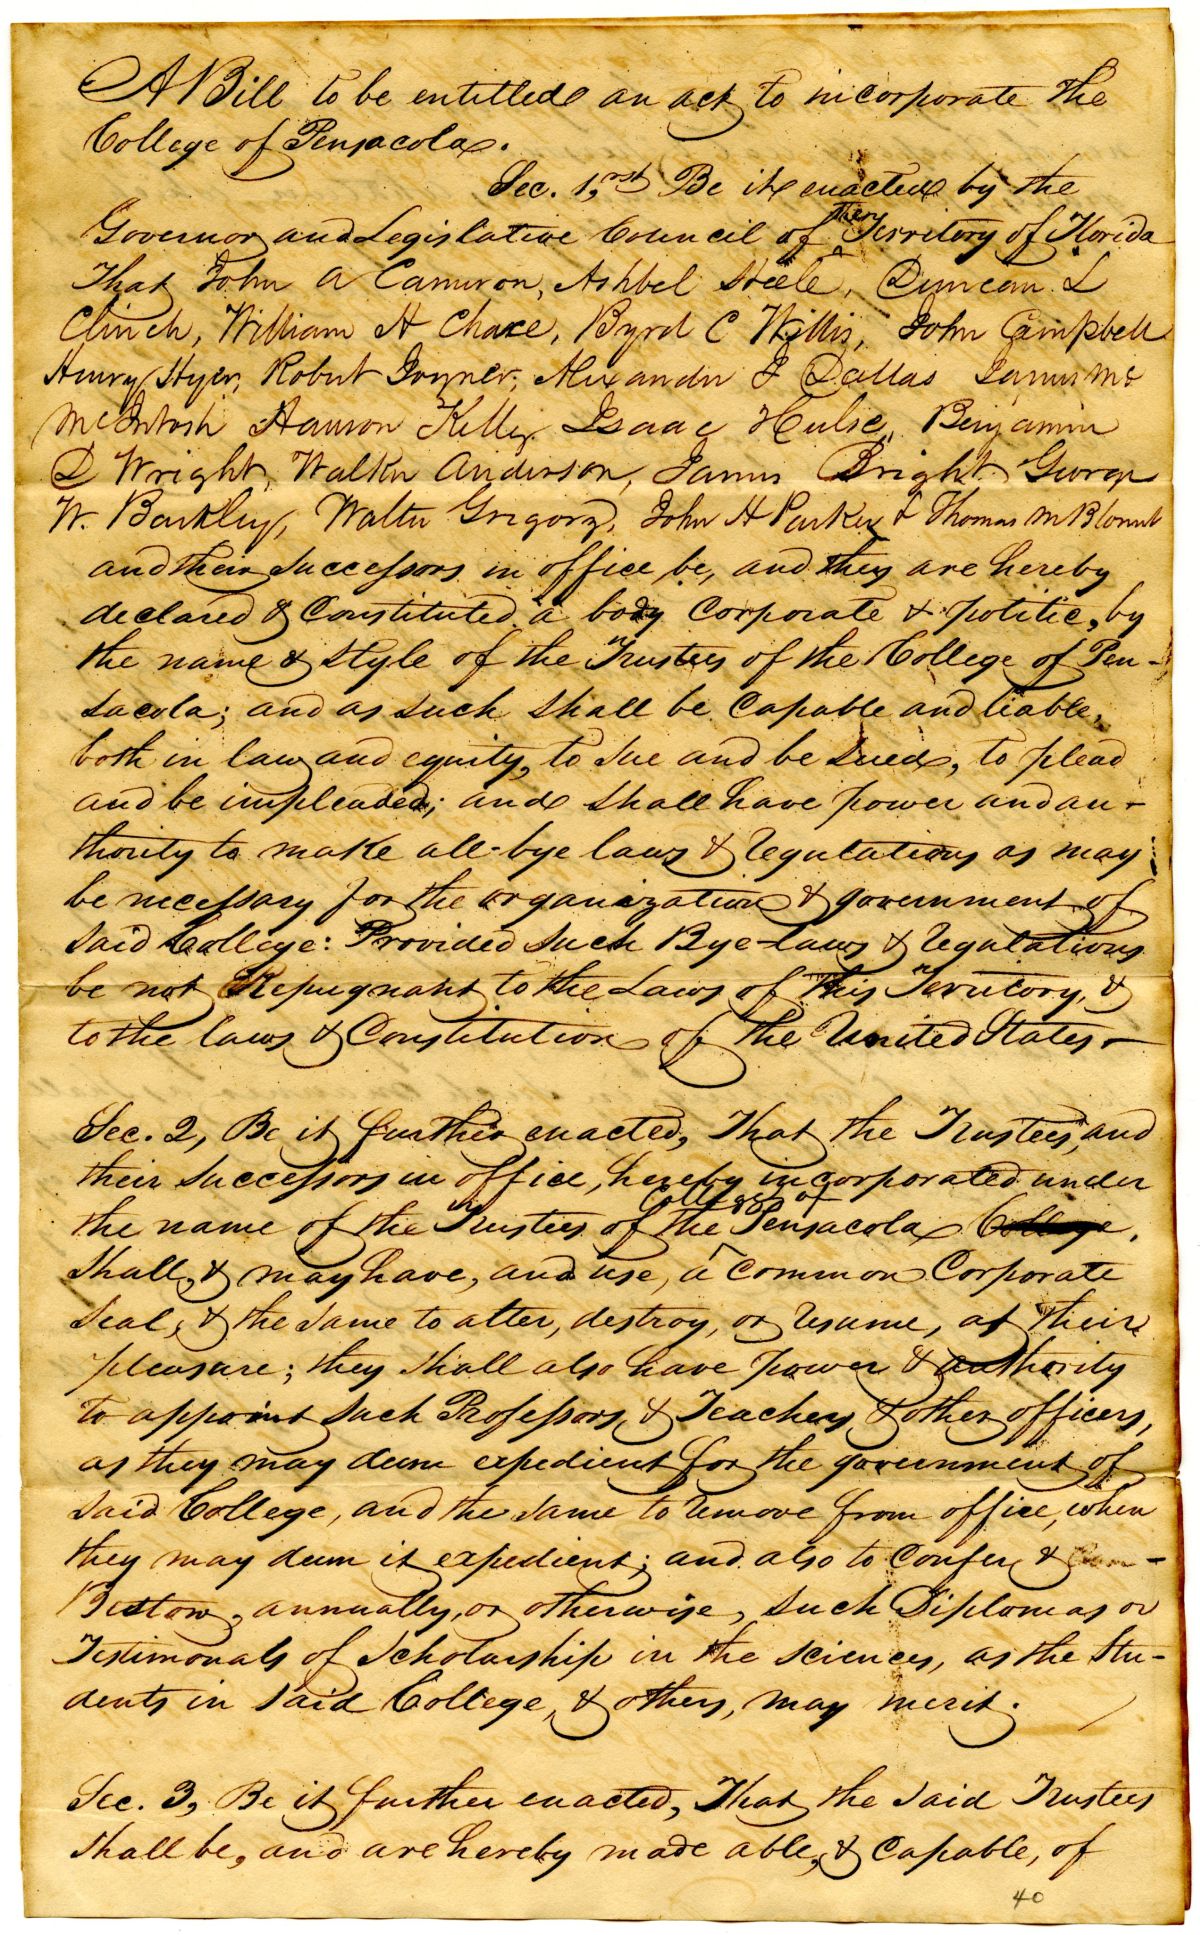 A Bill to be entitled an act to incorporate the
College of Pensacola.
Sec. 1,rst Be it enacted by the
Governor and Legislative Council of the Territory of Florida
That John A Cameron, Ashbel Steele, Duncan L
Clinch, William H Chase, Byrd C Willis, John Campbell
Henry Hyer, Robert Joyner, Alexander J Dallas James Mc
McIntosh Hanson Kelly Isaac Hulse, Benjamin
D Wright, Walker Anderson, James Bright George
W. Barkley, Walter Gregory, John H Parker & Thomas M Blount
and their successors in office be, and they are hereby
declared & Constituted a body Corporate & politic, by
the name & style of the Trustees of the College of Pen-
sacola; and as such shall be Capable and liable,
both in law and equity, to sue and be sued, to plead
and be impleaded; and shall have power and au-
thority to make all bye laws & regulations as may
be necessary for the organization & government of
said College: Provided such Bye-laws & regulations
be not Repugnant to the Laws of this Territory, &
to the laws & Constitution of the United States.
Sec. 2, Be it further enacted, That the Trustees, and
their successors in office, hereby incorporated under
the name of the Trustees of the College of Pensacola College,
shall, & may have, and use, a Common Corporate
Seal, & the same to alter, destroy, or resume, at their
pleasure; they shall also have power & authority
to appoint such Professors, & Teachers & other officers,
as they may deem expedient for the government of
said College, and the same to remove from office, when
they may deem it expedient; and also to Confer &
Bestow, annually, or otherwise, such Diplomas or
Testimonals of Scholarship in the sciences, as the Stu-
dents in said College, & others, may merit.
Sec. 3, Be it further enacted, That the said Trustees
shall be, and are hereby made able, & Capable, of
40